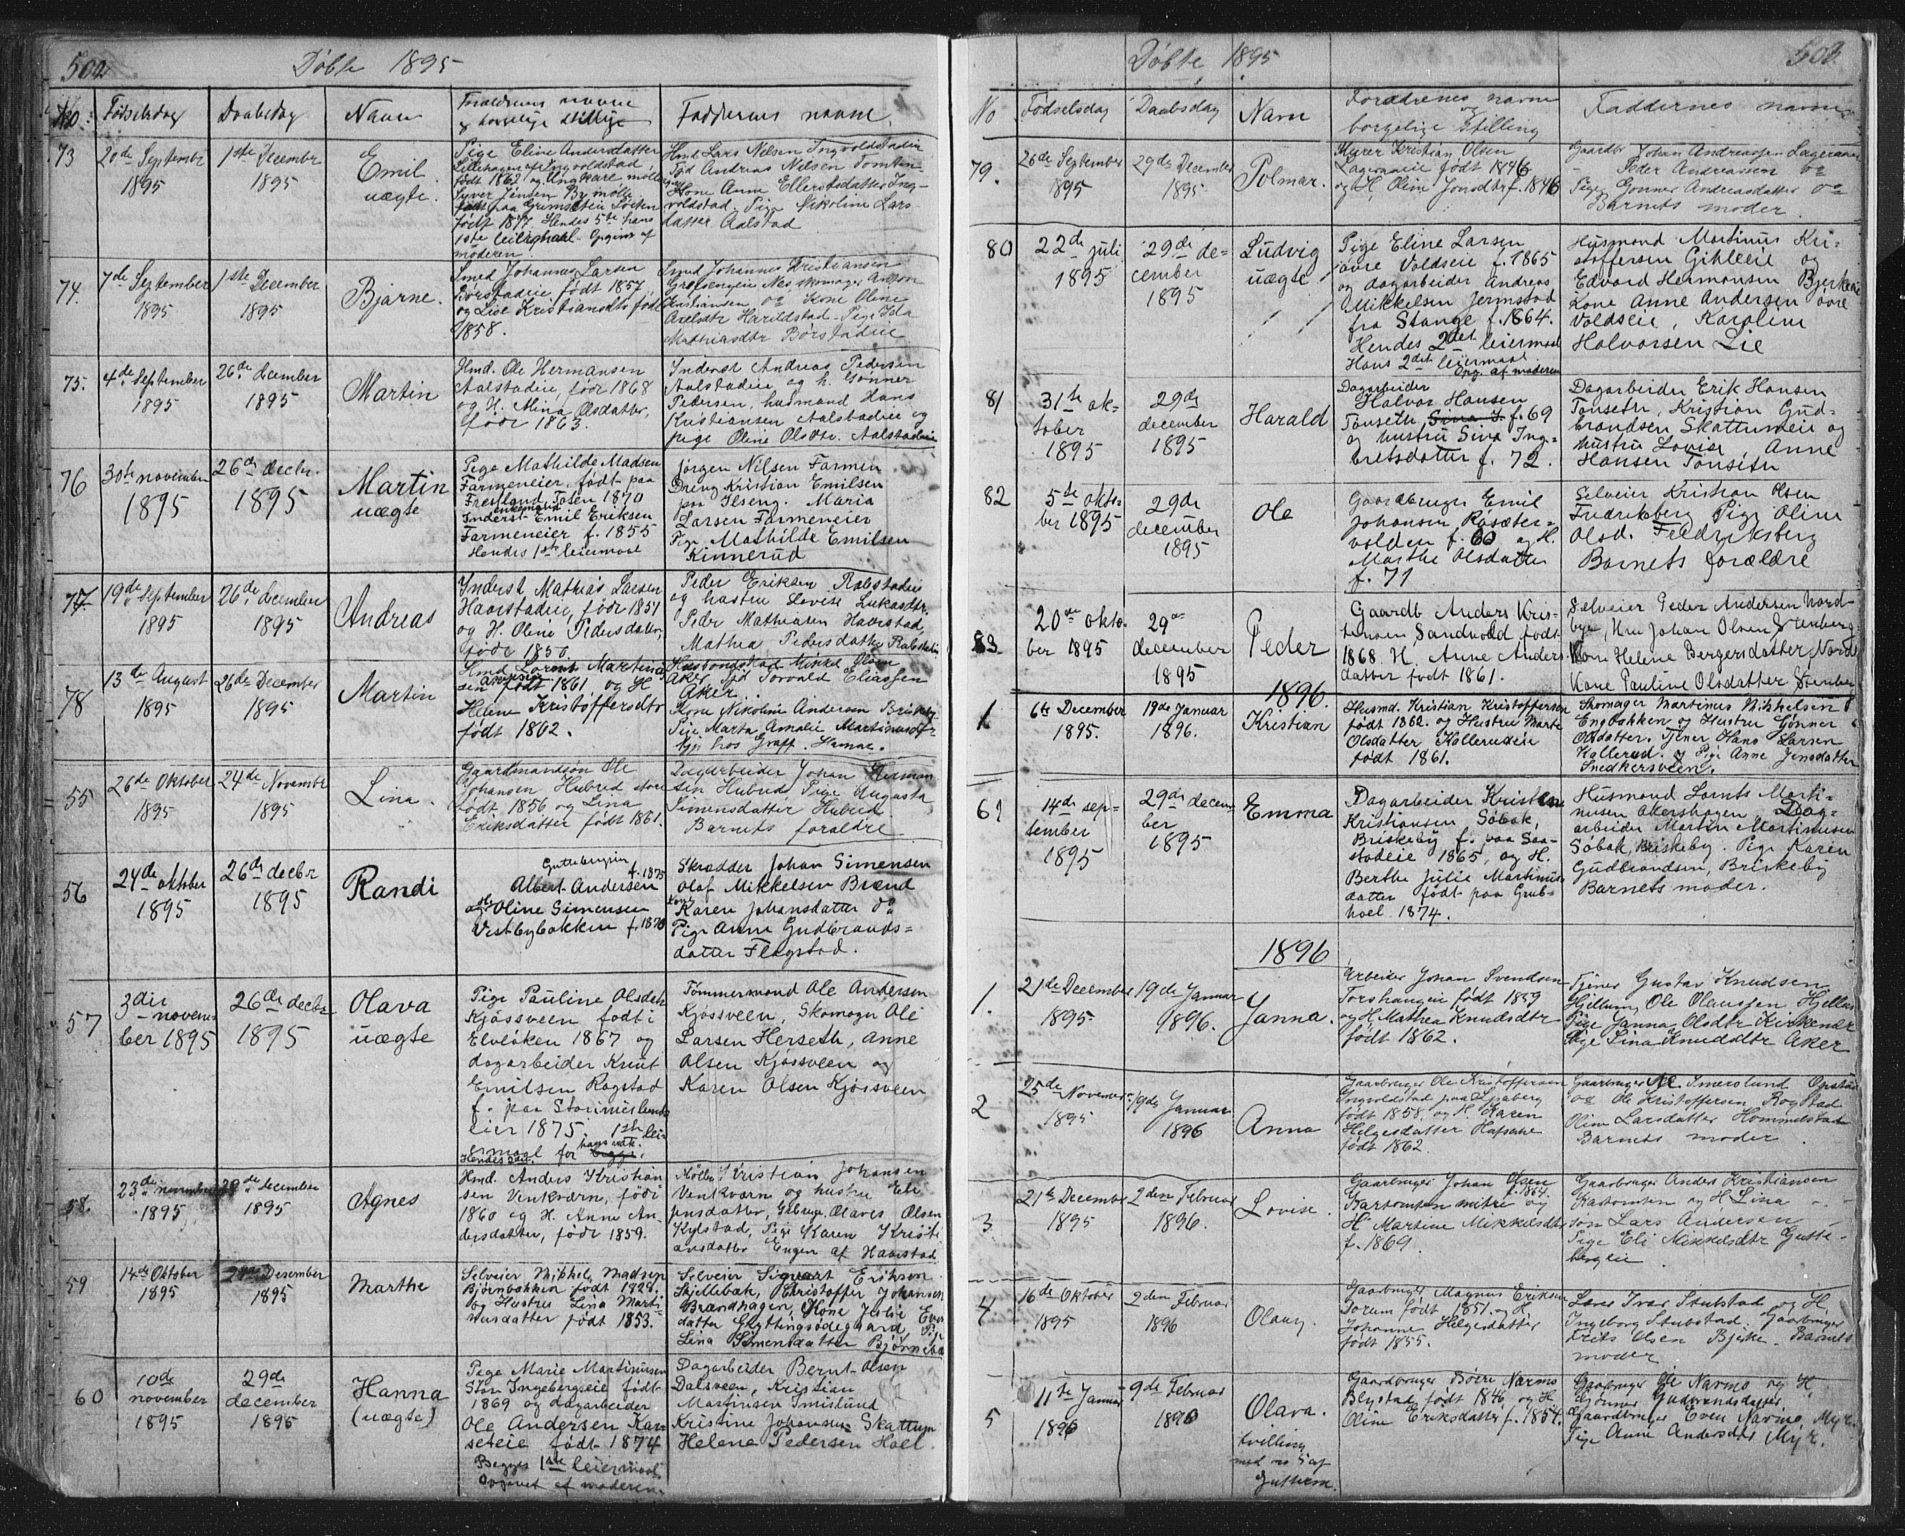 502 Døbte 1895
No. Fødselsdag Daabsdag Navn Forældrenes navne og borgelige stillige Faddernes navne.
73
20de Septembr 1895
1ste December 1895
Emil uægte.
Pige Eline Andersdatter
født 1862 og Ungkarl
født 1877. Hendes 5te hans
1ste leiermaal. Opgivet af
moderen.
Hmd Lars Nelsen Ingvoldstadie
Andreas Nelsen
Kone Anne Ellevsdatter Ing-
voldstad, Pige Nikoline Lars-
datter Aalstad
74.
7de September 1895
1ste December 1895
Bjarne.
Smed Johannes Larsen
Børstadeie, født 1857,
og Kristiansdtr født
1858.
Smed Johannes Kristiansen
Kristiansen og Kone Oline
Axelsdtr Harildstad. Pige Ida
Mathiasdtr Børstadeie
75.
4de September 1895
26de december 1895
Martin
Hmd. Ole Hermansen
Aalstadeie, født 1868
og H. Mina Olsdatter,
født 1863.
Inderst Andreas Pedersen
Aalstadeie, og h. Gønner
Pedersen, husmand Hans
Kristiansen Aalstadeie og
pige Oline Olsdtr. Aalstadeie
76
30te november 1895
26de decbr. 1895
Martin uægte
Pige Mathilde Madsen
Farmeneier, født paa
Toten 1870
enkemand
Inderst Emil Eriksen
Farmeneier f. 1855
Hendes 1ste leiermaal
Jørgen Nilsen Farmen
Dreng Kristian Emilsen
Ilseng. Maria
Larsen Farmeneier
Pige Mathilde Emilsen
Kinnerud
77
19de September 1895
26de december 1895
Andreas
Inderst Mathias Larsen
Haarstadeie, født 1851
og H. Oline Pedersdatter,
født 1850.
Peder Eriksen Rabstadeie
og hustru Lovise Lukasdtr.
Peder Mathiasen Haarstad
Mathea Pedersdatter Rabstadeie
78
13de August 1895
26de December 1895
Martin
Hmd Lorents Martinius
sen født 1861 og H.
Helene Kristoffersdtr
født 1862.
Husbondskarl Mikkel Olsen
Aker Torvald Eliassen
Aker.
Kone Nikoline Andersen
Pige Marta Amalie Martinusdtr
tjen hos Graff. Hamar.
55
26de Oktober 1895
24de Novembr 1895
Lina.
Gaardmandsøn Ole
Johansen Hubred
født 1856 og Lina
Eriksdatter født 1861.
Dagarbeider Johan Herman
sen Hubred Pige Augusta
Simensdatter Hubred
Barnets forældre
56
24de oktober 1895
26de decbr 1895
Randi
Albert Andersen f. 1875
Oline Simensen
Vestbybakken f. 1870
Skrædder Johan Simensen
Olaf Mikkelsen Brænd
Kone Karen Johansdatter do
Pige Anne Gudbrands-
datter Flagstad.
57
3die november 1895
26de decbr 1895
Olava uægte
Pige Pauline Olsdtr
Kjøssveen født i
Elveøken 1867 og
dagarbeider Knut
Emilsen Rogstad
f. paa
eier 1875. 1ste lei
ermaal for
Tømmermand Ole Andersen
Kjøssveen, Skomagr Ole
Larsen Herseth, Anne
Olsen Kjøssveen og
Karen Olsen Kjøssveen
58.
23de november 1895
29de december 1895
Agnes
Hmd. Anders Kristian-
sen Venkværn, født
1860 og H. Anne An-
dersdatter, født 1859.
Møller Kristian Johansen
Venkværn og hustru Eli
Jensdatter, Gbrugr. Olaves Olsen
Kylstad, Pige Karen Kristi-
ansdatter Engen af Haarstad
59
14de Oktober 1895
Desember 1895
Marthe
Selveier Mikkel Madsen
Bjørnbakken født 1828.
og Hustru Lina Marti-
nusdatter født 1853.
Selveier Sigvart Eriksen
Skjellebæk, Christoffer Johansen
Brandhagen, Kone Julie Even
datter Glyttingsødegaard, Pige
Lina Simensdatter
60
10de november 1895
29de december 1895
Hanna (uægte)
Pige Marie Martinusen
Stor Ingebergseie født
1869 og dagarbeider
Ole Andersen Kar-
seteie født 1874
Begges 1ste leiermaal
Opgivet af moderen.
Dagarbeider Bernt Olsen
Dalsveen, Kristian
Martinsen Imislund
Kristine Johansen Skattum
Helene Pedersen Hoel.
Døbte 1895 503.
No Fødselsdag Daabsdag Navn Forældrenes navne og borgelige Stilling Faddernes navne
79.
26de September 1895
29de December 1895
Polmar.
Murer Kristian Olsen
Lageraaeie født 1846
og H. Oline Jonsdtr f. 1846
Gaardbr Johan Andreassen Lageraaen
Peder Andreassen do
Pige Gønner Andreasdatter do
Barnets moder.
80
22de juli 1895
29de december 1895
Ludvig uægte
Pige Eline Larsen
øvre Voldseie f. 1865
og dagarbeider Andreas
Mikkelsen Jermstad
fra Stange f. 1864.
Hendes 2det leiermaal
Hans 2det leiermaal
Opg. af moderen
Husmand Martinus Kri-
stoffersen Gihleeie og
Edvard Hermansen Bjerkeeie
Kone Anne Andersen øvre
Voldseie, Karoline
Halvorsen Lie
81
31te oktober 1895
29de december 1895
Harald
Dagarbeider
Halvor Hansen
Tonseth, f. 69
og hustru Siva Ing-
bretsdatter f. 72.
Dagarbeider Erik Hansen
Tonseth, Kristian Gud-
brandsen Skattumeie og
hustru Lovise, Anne
Hansen Tonseth
82
5te oktober 1895
29de december 1895
Ole
Gaardbruger Emil
Johansen Rosæter-
volden f. 60 og H.
Marthe Olsdatter
f. 71
Selveier Kristian Olsen
Fredriksberg Pige Oline
Olsd. Fredriksberg
Barnets forældre
83.
20de oktober 1895
29de december 1895
Peder
Gaardb Anders Kris-
tensen Sandvold født
1868 H. Anne Anders
datter født 1861.
Selveier Peder Andersen Nord-
bye, Hmd Johan Olsen Stenberg
Kone Helene Bergersdatter Nordb
Kone Pauline Olsdatter Stenber
1896.
1
6te December 1895.
19de Januar 1896.
Kristian
Husmd. Kristian Kristoffersen
født 1862. og Hustru Marte
Olsdatter Kollerudeie
født 1861.
Skomager Martinus Mikkelsen
Engbakken og Hustru Gønner
Olsdatter. Tjener Hans Larsen
Kollerud. og Pige Anne Jensdatter
Snedkersveen.
61
14de september 1895
29de december 1895
Emma
Dagarbeider Kristian
Kristiansen Søbak,
Briskeby f. paa Saa-
stadeie 1865, og H.
Berthe Julie Martinus
datter født paa Grubs-
hoel 1874.
Husmand Lornts Marti-
nusen Akershagen Dag-
arbeider Martin Martinusen
Søbak, Briskeby. Pige Karen
Gudbrandsen, Briskeby
Barnets moder.
1896
1.
21de December 1895
19de Januar 1896.
Janna.
Arbeider Johan Svendsen
Torshaugeie født 1859
og H. Mathea Knudsdtr
født 1862.
Tjener Gustav Knudsen
Hjellum, Ole Olaussen Hjellum
Pige Janna Olsdtr Kirkenær
Pige Lina Knudsdtr Aker
2
25de November 1895
19de Januar 1896
Anna
Gaarbruger Ole Kristoffersen
Ingvoldstad paa
født 1858. og H. Karen
Helgesdatter
født 1862.
Gaarbruger Imerslund Opstad
og Ole Kristoffersen Rogstad
Oline Larsdatter Hommelstad
Barnets moder.
3
21de December 1895
2den Februar 1896.
Lovise.
Gaarbruger Johan Olsen
f. 1864.
og
H. Martine Mikkelsdtr
f. 1869.
Gaarbruger Anders Kristiansen
og H. Lina
Lars Andersen
Pige Eli Mikkelsdtr Gutte-
bergeie
4.
16de Oktober 1895
2den Februar 1896
Olaug.
Gaarbruger Magnus Eriksen
Torum født 1851. og H.
Johanne Helgesdatter
født 1855.
Lars Ivar Stubstad og H.
Ingeborg Stubstad. Gaarbruger
Frits Olsen Bjerke. Barnets
moder
5
11te Januar 1896
9de Februar 1896
Olava.
tvilling
med no 5 af
Guttene.
Gaardbruger Børre Narmo
Blystad født 1846 og H.
Oline Eriksdatter f. 1854.
Gaarbruger Ole Narmo og H.
Gønner Gudbrandsdatter,
Gaardbruger Even Narmo, Myr.
Pige Anne Andersdtr Myr.